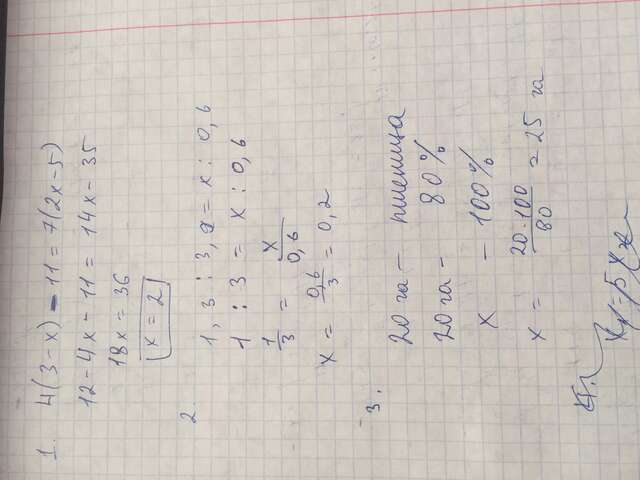 1. 4(3-x)-11=7(2x-5)
12-4x-11=14x-35
18x=36
x=2
2. 1,3:3,9=x:0,6
1:3=x:0,6
1/3=x/0,6
x=0,6/3=0,2
3.
20 га - пшеница
20 га - 80%
x - 100%
x=20·100/80=25 га
4.